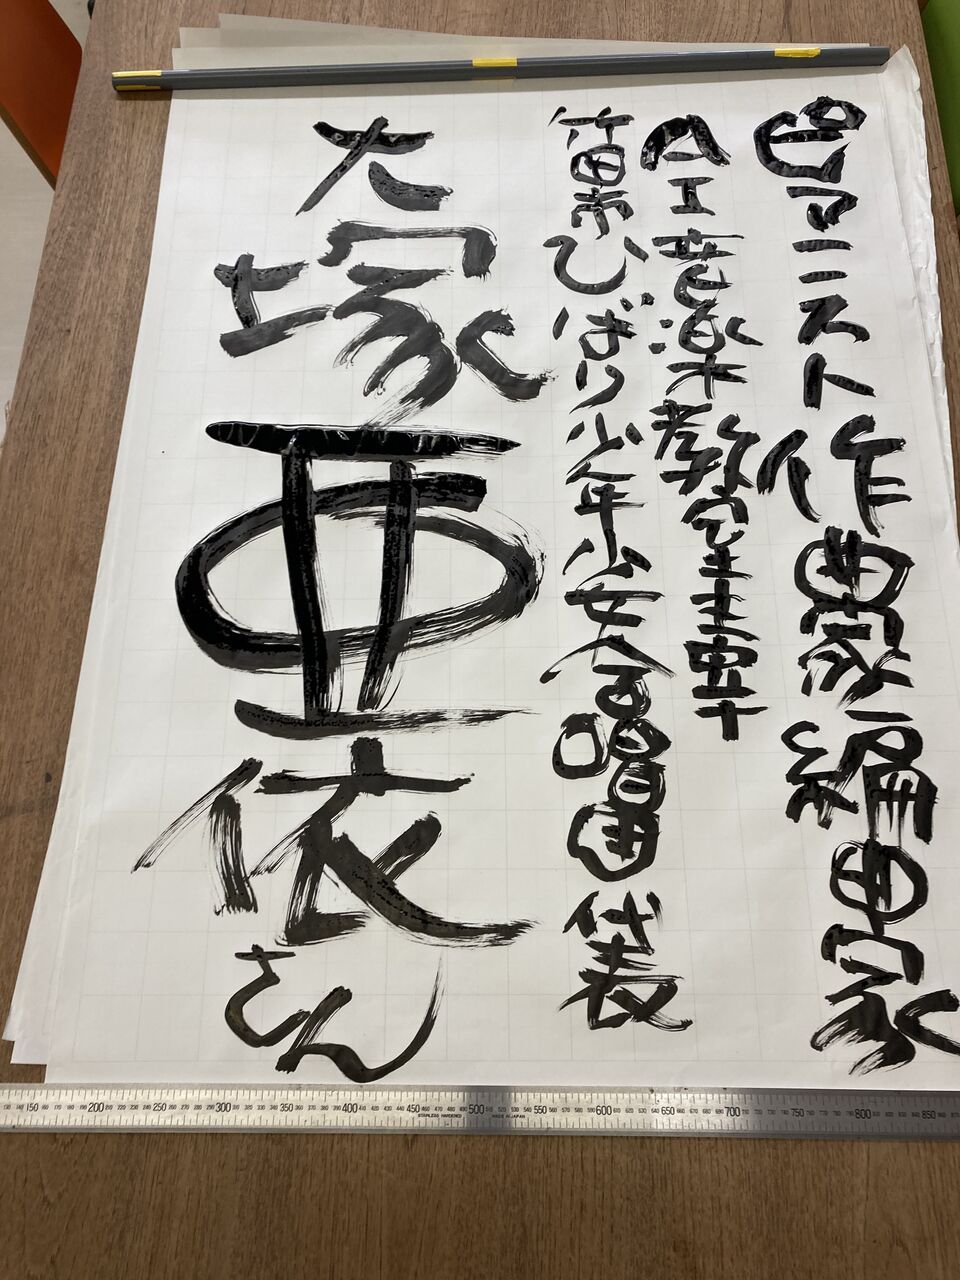 ピアニスト作曲家編曲家
AI音楽教室主宰
箕面ひばり少年少女合唱団代表
大塚亜依さん
STAINLESS HARDENED
MADE IN JAPAN
150 200 250 300 350 400 450 500 550 600 650 700 750 800 850